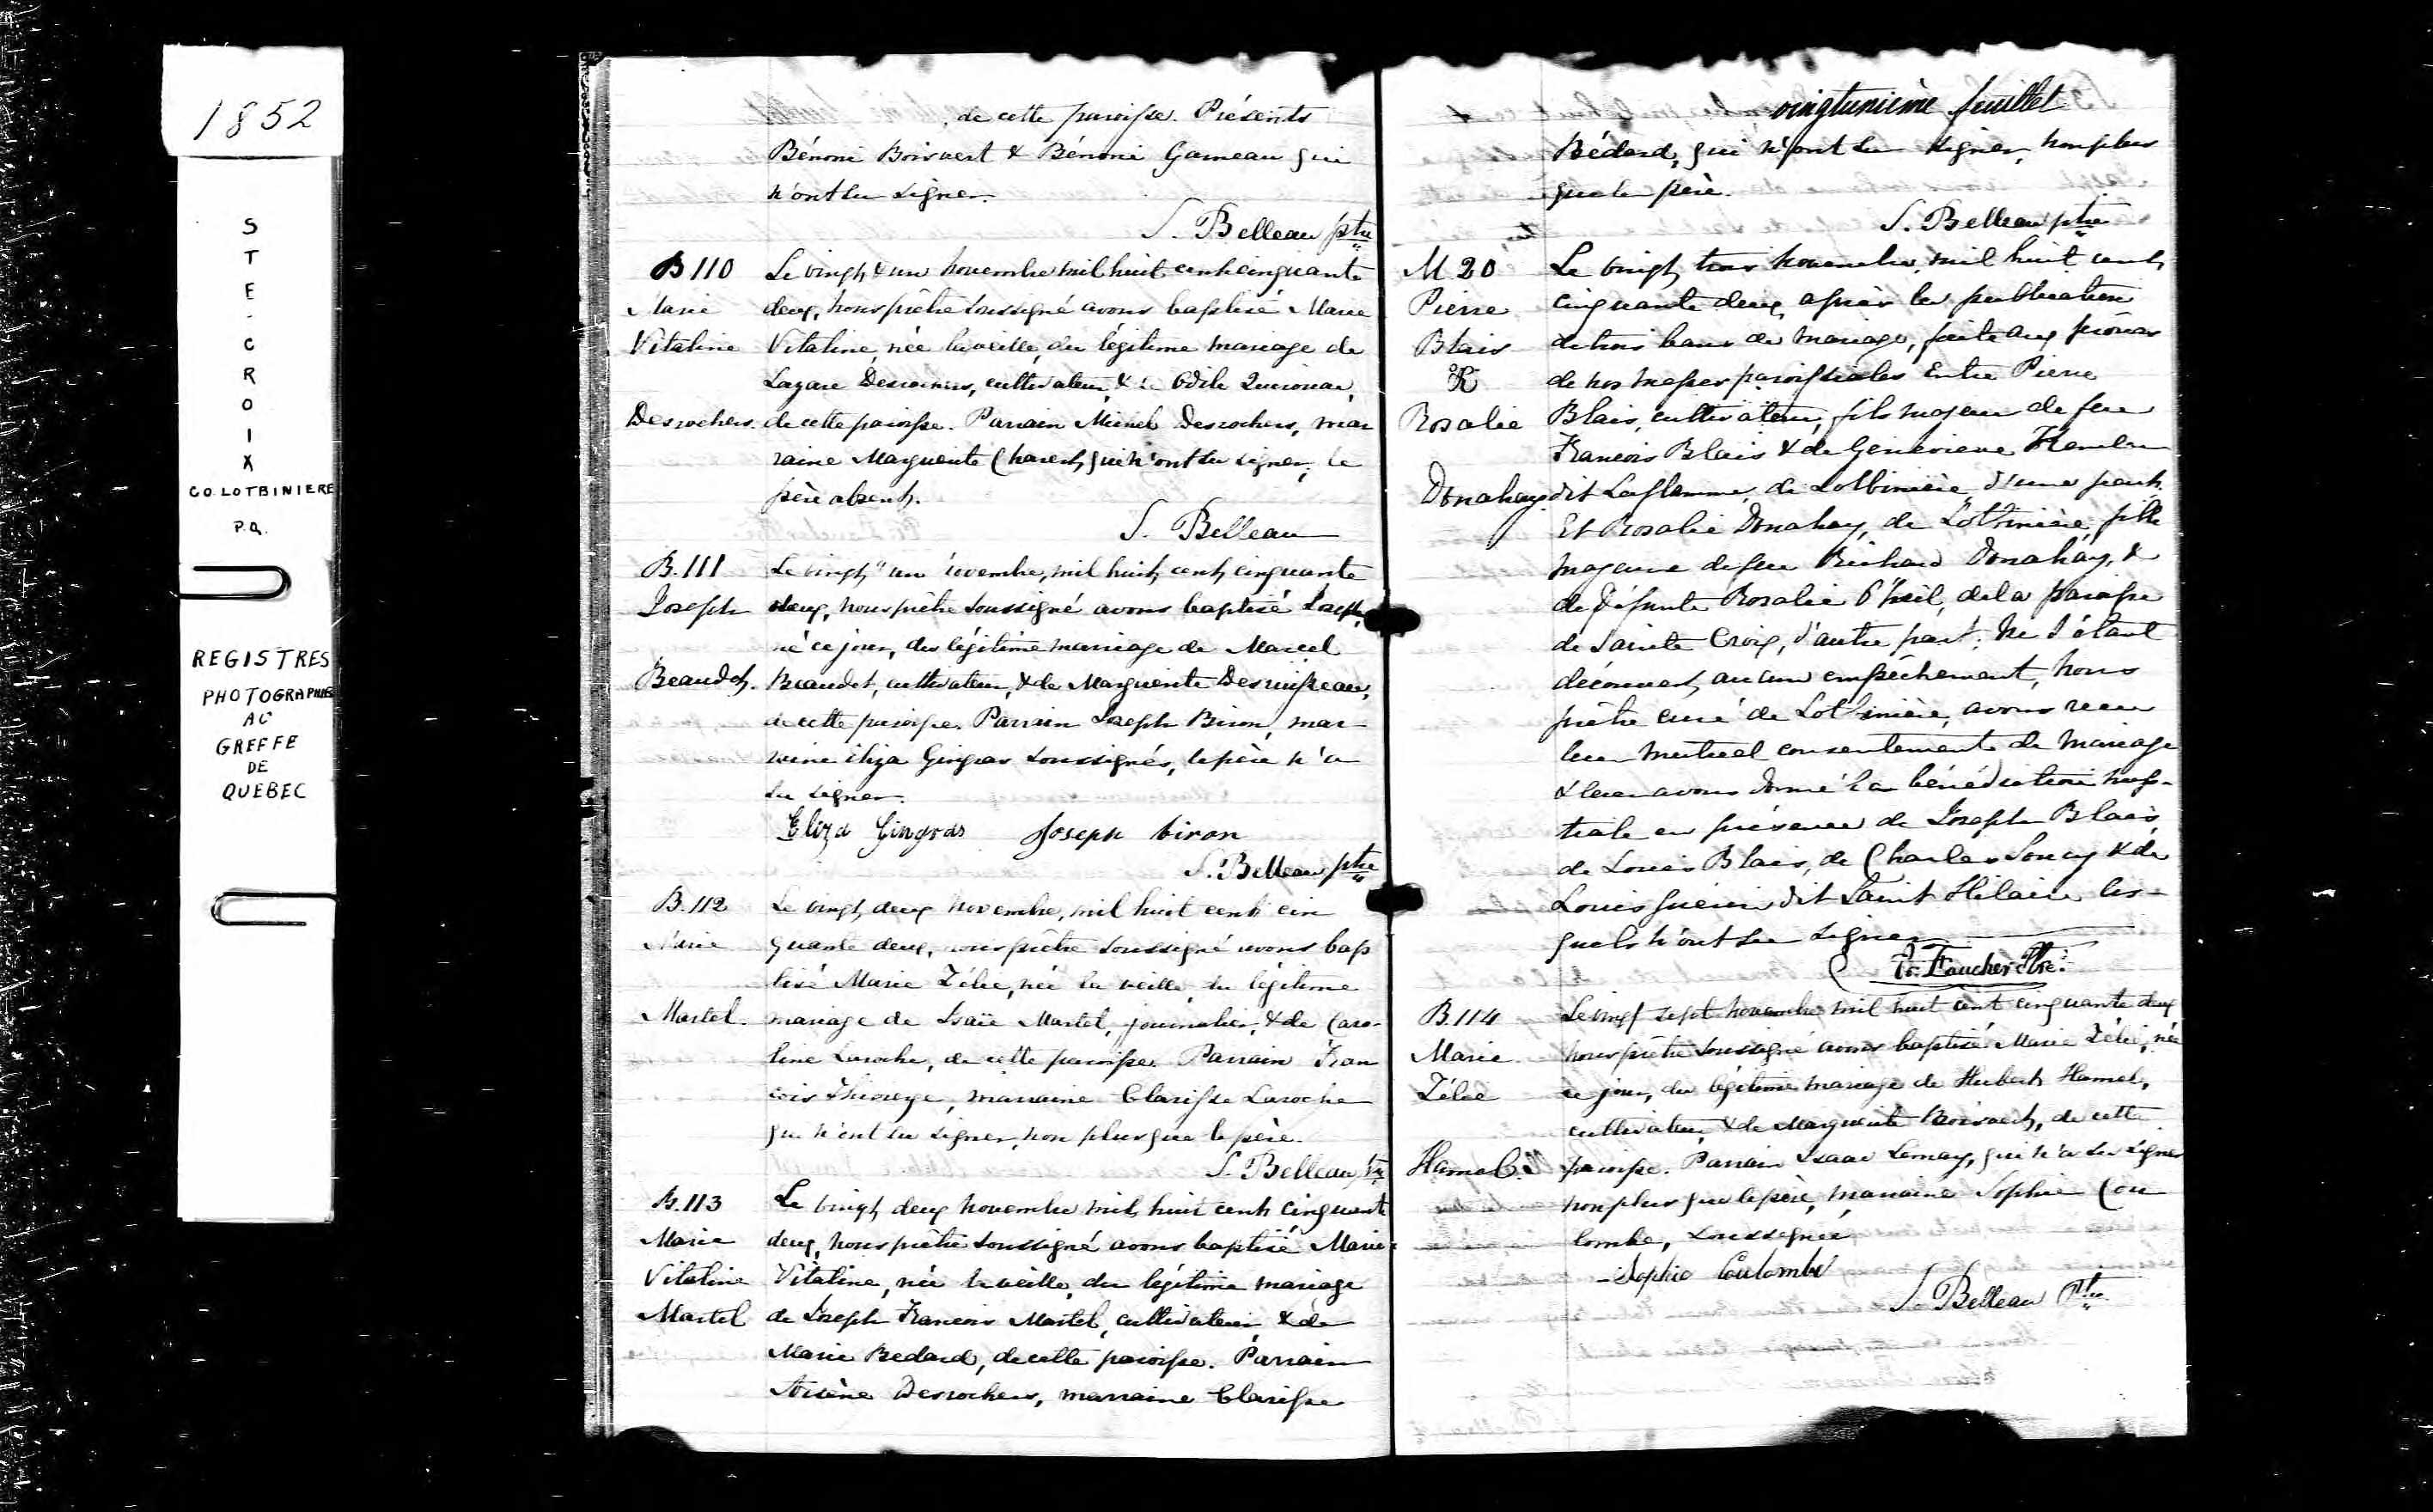 1852
STE-CROIX
CO. LOTBINIERE
P.Q.
REGISTRES
PHOTOGRAPHIES
AU
GREFFE
DE
QUEBEC
de cette paroisse. Présents
Bénoni Boisvert & Bénoni Garneau qui
n'ont su signer.
S. Belleau ptre
B 110
Marie
Vitaline
Desrochers.
Le vingt & un novembre mil huit cent cinquante
deux, nous prêtre soussigné avons baptisé Marie
Vitaline, née la veille, du légitime mariage de
Lazare Desrochers, cultivateur, & de Odile
de cette paroisse. Parrain Michel Desrochers, mar
raine Marguerite Charest, qui n'ont su signer, le
père absent.
S. Belleau
B. 111
Joseph
Beaudet.
Le vingt un novembre, mil huit cent, cinquante
deux, nous prêtre soussigné avons baptisé Joseph,
né ce jour, du légitime mariage de Marcel
Beaudet, cultivateur, & de Marguerite Desruisseau,
de cette paroisse. Parrain Joseph Biron, mar-
raine Eliza Gingras soussignés, le père n'a
su signer.
Eliza Gingras Joseph biron
S. Belleau ptre
B. 112
Marie
Martel.
Le vingt deux novembre, mil huit cent cin
quante deux, nous prêtre soussigné avons bap
tisé Marie Zélie, née la veille, du légitime
mariage de Isaïe Martel, journalier, & de Caro-
line Laroche, de cette paroisse. Parrain Fran
cois Thivierge, marraine Clarisse Laroche
qui n'ont su signer, non plus que le père.
S. Belleau ptre
B. 113
Marie
Vitaline
Martel
Le vingt deux novembre mil huit cent cinquante
deux, nous prêtre soussigné avons baptisé Marie
Vitaline, née la veille, du légitime mariage
de Joseph Francois Martel, cultivateur & de
Marie Bedard, de cette paroisse. Parrain
Arsène Desrochers, marraine Clarisse
vingtunième feuillet
Bédard, qui n'ont su signer, non plus
que le père.
S. Belleau ptre
M 20
Pierre
Blais
&
Rosalie
Donahay.
Le vingt trois novembre, mil huit cent,
cinquante deux, après la publication
de trois bans de mariage, faite aux prônes
de nos messes paroissiales Entre Pierre
Blais, cultivateur, fils majeur de feu
Francois Blais & de Genevieve
dit Laflamme, de Lotbinière, d'une part,
Et Rosalie Donahay, de Lotbinière, fille
majeure de feu Richard Donahay, &
de défunte Rosalie O'Neil, de la paroisse
de Sainte Croix, d'autre part; ne s'étant
découvert, aucun empêchement, nous
prêtre curé de Lotbinière, avons recu
leur mutuel consentement de mariage
& leur avons donné la bénédiction nup-
tiale en présence de Joseph Blais,
de Louis Blais, de Charles Soucy & de
Louis Guérin dit Saint Hilaire les-
quels n'ont su signer
Faucher Ptre.
B. 114
Marie
Zélie
Hamel.
Le vingt sept novembre mil huit cent cinquante deux
nous prêtre soussigné avons baptisé Marie Zélie, née
ce jour, du légitime mariage de Hubert Hamel,
cultivateur, & de Marguerite Boisvert, de cette
paroisse. Parrain Isaac Lemay, qui n'a su signer
non plus que le père, marraine Sophie Cou
lombe, soussignée
Sophie Coulombe
S. Belleau Ptre